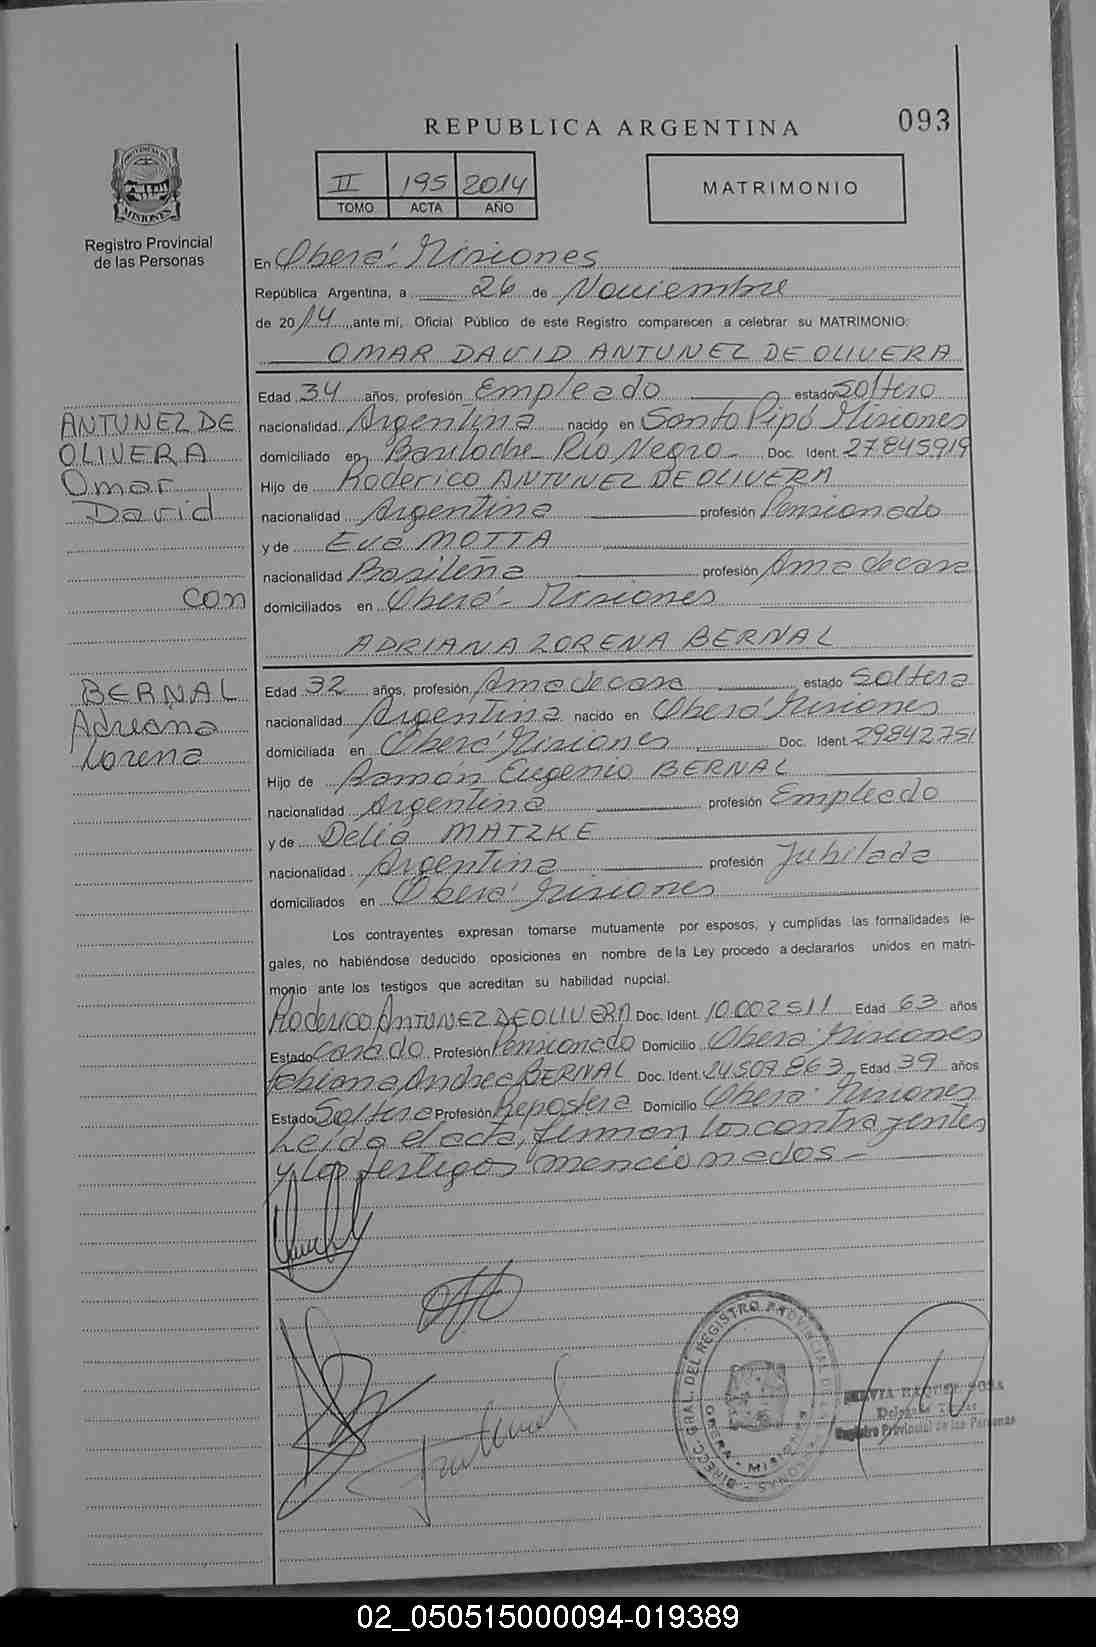 REPUBLICA ARGENTINA
093
II 195 2014
TOMO ACTA AÑO
MATRIMONIO
PROVINCIA DE
MISIONES
Registro Provincial
de las Personas
En Oberá - Misiones
República Argentina, a 26 de Noviembre
de 2014, ante mí, Oficial Público de este Registro comparecen a celebrar su MATRIMONIO:
OMAR DAVID ANTUNEZ DE OLIVERA
Edad 34 años, profesión Empleado estado Soltero
nacionalidad Argentina nacido en Santo Pipó Misiones
domiciliado en Bariloche Río Negro - Doc. Ident. 27845919
Hijo de Roderico ANTUNEZ DE OLIVERA
nacionalidad Argentina profesión Pensionado
y de Eva MOTTA
nacionalidad Brasileña profesión Ama de casa
domiciliados en Oberá - Misiones
ANTUNEZ DE
OLIVERA
Omar
David
con
BERNAL
Adriana
Lorena
ADRIANA LORENA BERNAL
Edad 32 años, profesión Ama de casa estado Soltera
nacionalidad Argentina nacido en Oberá Misiones
domiciliada en Oberá Misiones Doc. Ident. 29842751
Hijo de Ramón Eugenio BERNAL
nacionalidad Argentina profesión Empleado
y de Delia MATZKE
nacionalidad Argentina profesión Jubilada
domiciliados en Oberá Misiones
Los contrayentes expresan tomarse mutuamente por esposos, y cumplidas las formalidades le-
gales, no habiéndose deducido oposiciones en nombre de la Ley procedo a declararlos unidos en matri-
monio ante los testigos que acreditan su habilidad nupcial.
Roderico ANTUNEZ DE OLIVERA Doc. Ident. 10.002511 Edad 63 años
Estado Casado Profesión Pensionado Domicilio Oberá Misiones
Fabiana Andrea BERNAL Doc. Ident. 24509863 Edad 39 años
Estado Soltera Profesión Repostera Domicilio Oberá Misiones
Leida el acta, firman los contrayentes
y los testigos mencionados -
DIRECC. GRAL. DEL REGISTRO PROVINCIAL DE LAS PERSONAS
OBERA - MISIONES
RAQUEL SOSA
Registro Provincial de las Personas
02_050515000094-019389